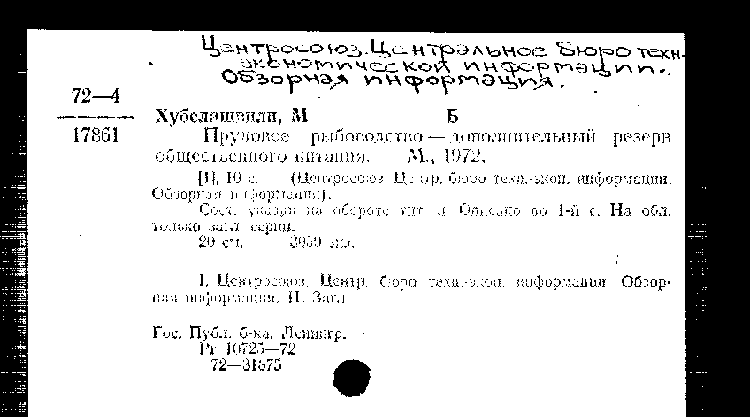 Центросоюз. Центральное бюро техн.
экономической информации.
Обзорная информация.
72—4
17861
Хубелашвили, М Б
Прудовое рыбоводство — дополнительный резерв
общественного питания. М., 1972.
[1], 10 с. (Центросоюз. Центр. бюро техн.-экон. информации.
Обзорная информация).
Сост. указан на обороте тит. л. Описано по 1-й с. На обл.
только загл. серии.
20 см. экз.
I. Центросоюз. Центр. бюро техн.-экон. информации. Обзор-
ная информация. II. Загл
Гос. Публ. б-ка. Ленингр.
Рт 10725—72
72—31575